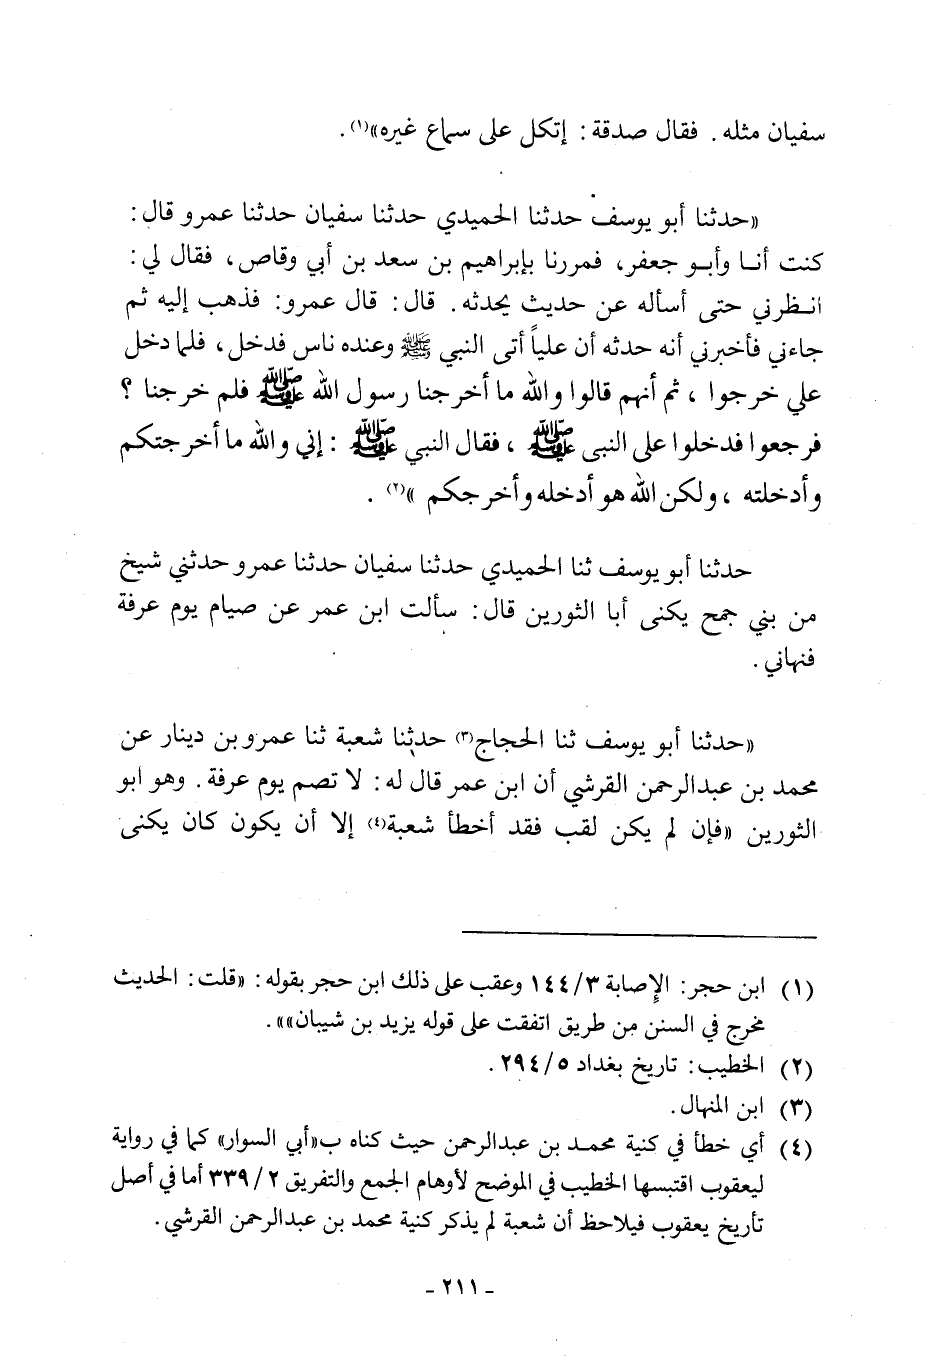 سفيان مثله . فقال صدقة : إتكل على سماع غيره»(١) .
«حدثنا أبو يوسف حدثنا الحميدي حدثنا سفيان حدثنا عمرو قال :
كنت أنا وأبو جعفر، فمررنا بإبراهيم بن سعد بن أبي وقاص، فقال لي :
انظرني حتى أسأله عن حديث يحدثه . قال : قال عمرو: فذهب إليه ثم
جاءني فأخبرني أنه حدثه أن علياً أتى النبي ﷺ وعنده ناس فدخل، فلما دخل
علي خرجوا ، ثم أنهم قالوا والله ما أخرجنا رسول الله ﷺ فلم خرجنا ؟
فرجعوا فدخلوا على النبى ﷺ ، فقال النبي ﷺ : إني والله ما أخرجتكم
وأدخلته ، ولكن الله هو أدخله وأخرجكم »(٢) .
حدثنا أبو يوسف ثنا الحميدي حدثنا سفيان حدثنا عمرو حدثني شيخ
من بني جمح يكنى أبا الثورين قال : سألت ابن عمر عن صيام يوم عرفة
فنهاني .
«حدثنا أبو يوسف ثنا الحجاج(٣) حدثنا شعبة ثنا عمرو بن دينار عن
محمد بن عبدالرحمن القرشي أن ابن عمر قال له : لا تصم يوم عرفة . وهو ابو
الثورين «فإن لم يكن لقب فقد أخطأ شعبة(٤) إلا أن يكون كان يكنى
(١) ابن حجر: الإصابة ١٤٤/٣ وعقب على ذلك ابن حجر بقوله : «قلت : الحديث
مخرج في السنن من طريق اتفقت على قوله يزيد بن شيبان»» .
(٢) الخطيب : تاريخ بغداد ٢٩٤/٥ .
(٣) ابن المنهال .
(٤) أي خطأ في كنية محمد بن عبدالرحمن حيث كناه ب«أبي السوار» كما في رواية
ليعقوب اقتبسها الخطيب في الموضح لأوهام الجمع والتفريق ٣٣٩/٢ أما في أصل
تأريخ يعقوب فيلاحظ أن شعبة لم يذكر كنية محمد بن عبدالرحمن القرشي .
- ٢١١ -